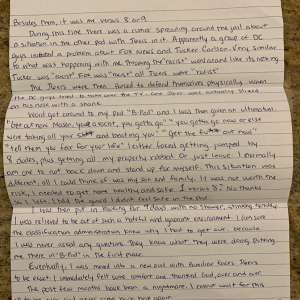 Besides them, it was me versus 8 or 9.
During this time there was a rumor spreading around the jail about
a situation in the other pod with Jews in it. Apparently a group of DC
guys started a problem about Fox News and Tucker Carlson. Very similar
to what was happening with me. Throwing the "racist" word around like its nothing.
Tucker was "racist". Fox was "racist". All Jews were "racist".
The Jews were then forced to defend themselves physically when
the DC guys tried to take over the TV. One Jew was actually sliced
on his neck with a shank.
Word got around to my pod "B-Pod" and I was then given an ultimatum.
"Get out now. Make your exit, you gotta go." "you gotta go now or else
were taking all your and beating you." "Get the out now"
"tell them you fear for your life" I either faced getting jumped by
8 dudes, plus getting all my property robbed. Or just leave. Normally
am one to not back down and stand up for myself. This situation was
different, all I could think of was my son and family. It was not worth the
risk, I needed to get home healthy and safe.
So I left. I told the guard I didn't feel safe in the pod.
I was then put in for with no
I was relieved to be out of such a hateful and violent environment. I am sure
the classification administration knew why I had to get out, because
I was never asked any questions. They knew what they were doing putting
me there in "B-Pod" in the first place.
Eventually I was moved into a new pod with familiar faces. Jews
to be exact. I immediately felt some comfort and thanked God, over and over.
The past few months have been a nightmare. I cannot wait for this